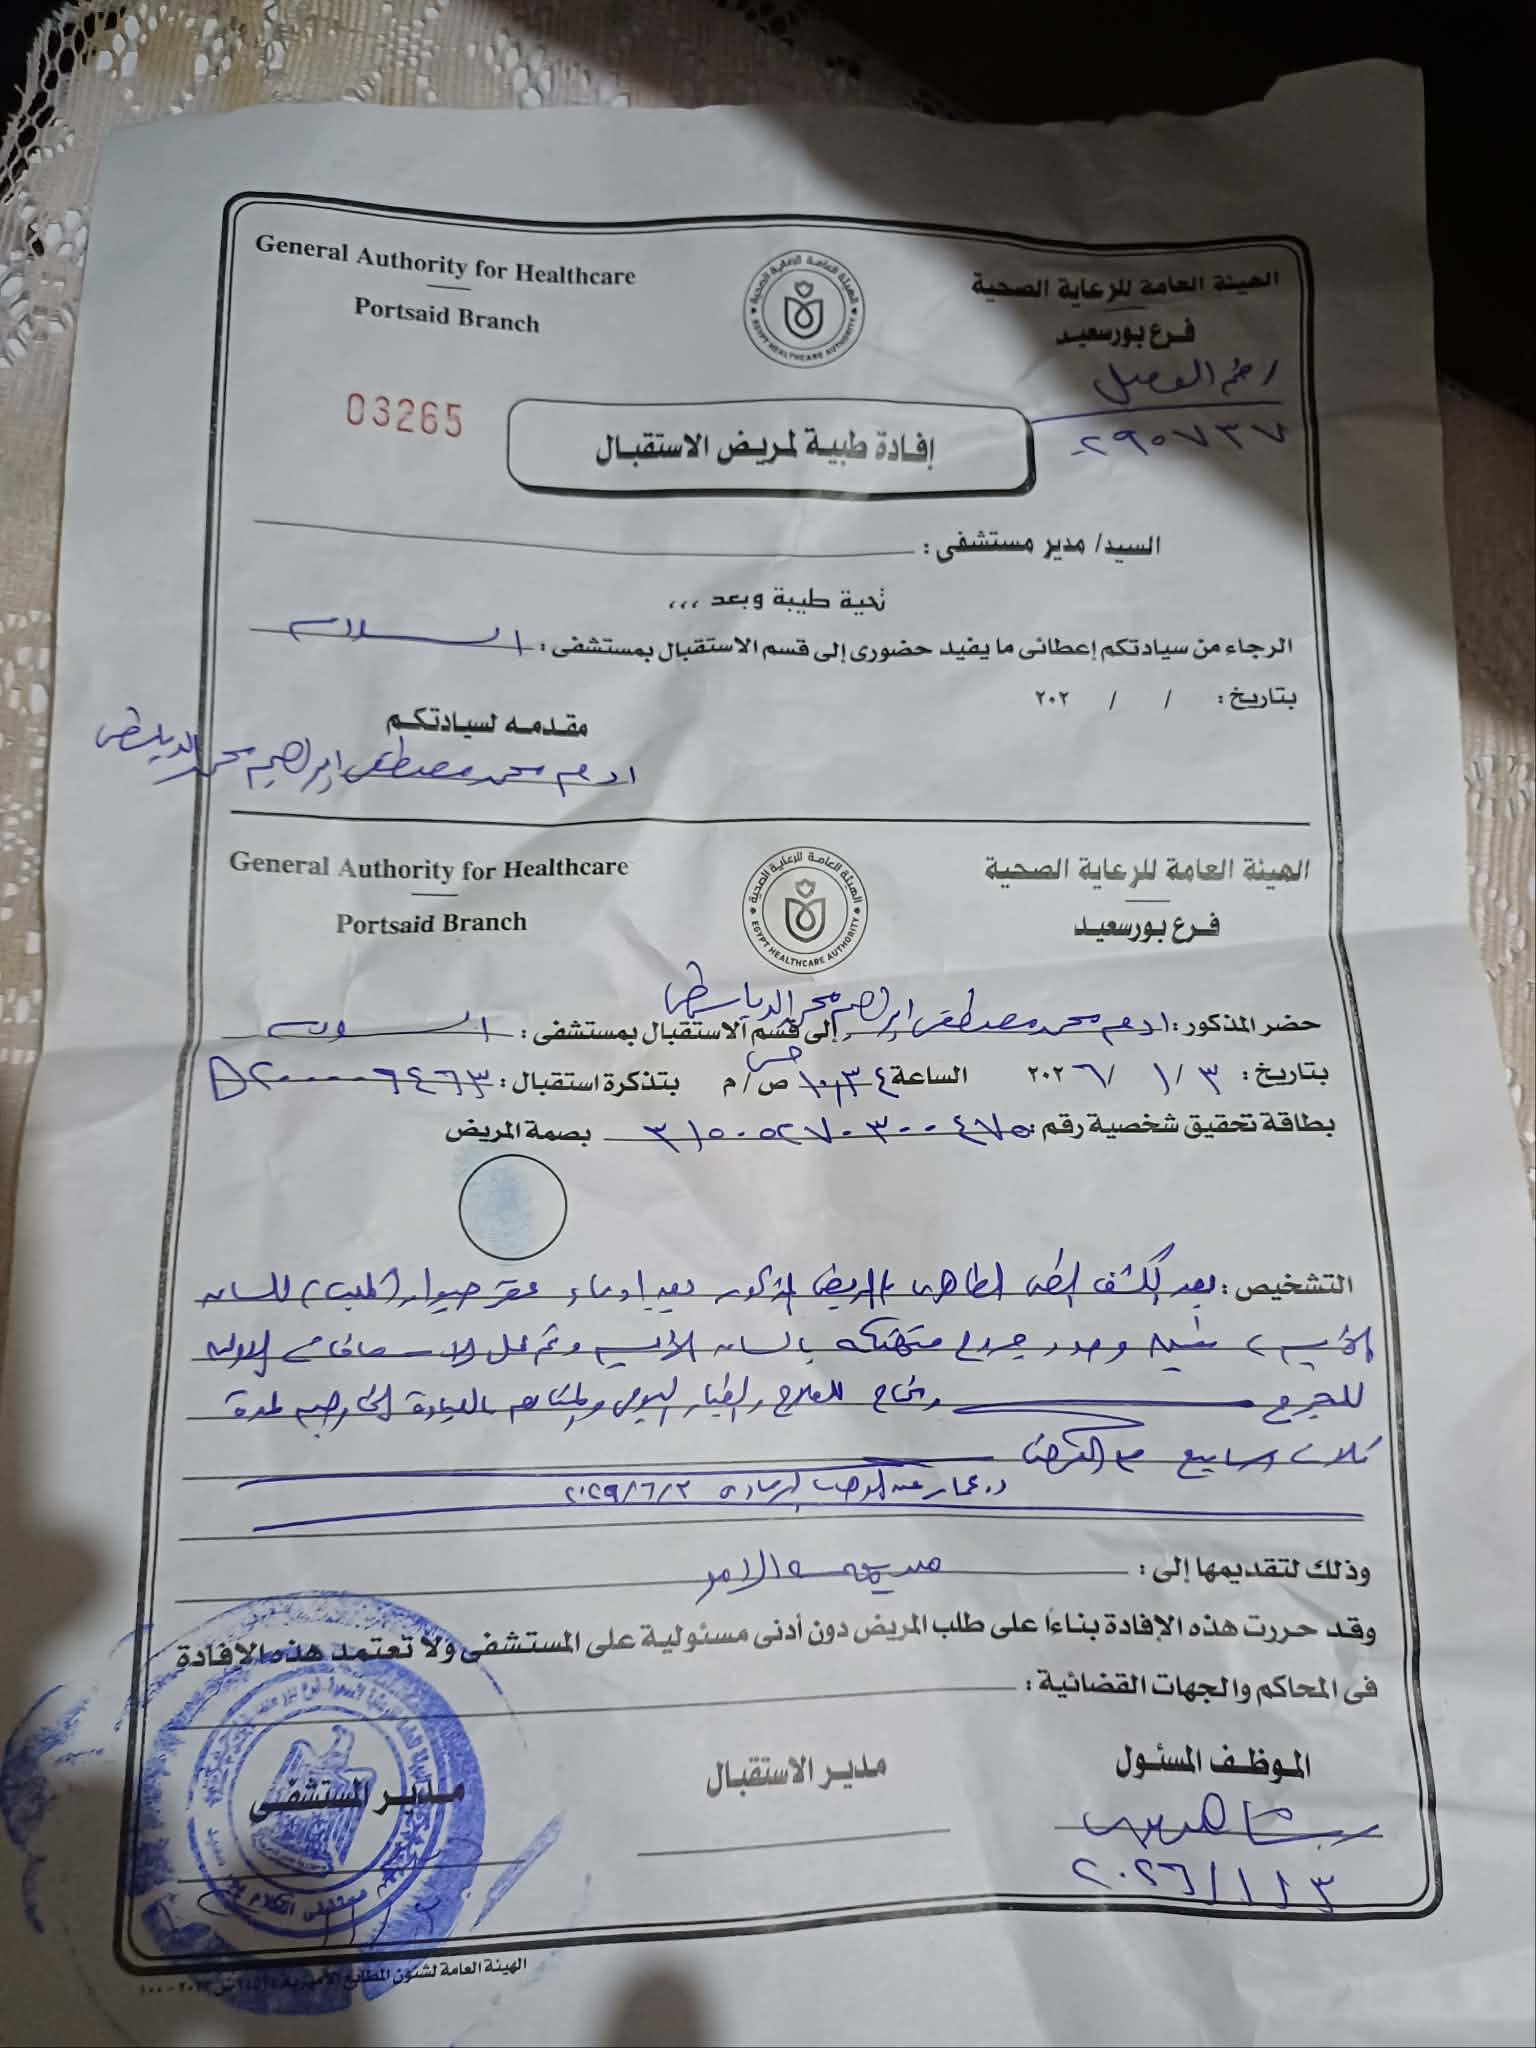 General Authority for Healthcare
Portsaid Branch
الهيئة العامة للرعاية الصحية
فرع بورسعيد
EGYPT HEALTHCARE AUTHORITY
الهيئة العامة للرعاية الصحية
03265
٢٩٠٧٣٧
إفادة طبية لمريض الاستقبال
السيد/ مدير مستشفى :
تحية طيبة وبعد ,,,
الرجاء من سيادتكم إعطائى ما يفيد حضورى إلى قسم الاستقبال بمستشفى : السلام
بتاريخ : / / ٢٠٢
مقدمه لسيادتكم
ادهم محمد مصطفى ابراهيم محمد
General Authority for Healthcare
Portsaid Branch
الهيئة العامة للرعاية الصحية
فرع بورسعيد
EGYPT HEALTHCARE AUTHORITY
الهيئة العامة للرعاية الصحية
حضر المذكور : ادهم محمد مصطفى ابراهيم محمد إلى قسم الاستقبال بمستشفى : السلام
بتاريخ : ٣ / ١ / ٢٠٢٦ الساعة ١٠,٣٤ ص/م بتذكرة استقبال :
بطاقة تحقيق شخصية رقم : ٣١٥٠٥٢٧٠٣٠٠٤٧٥ بصمة المريض
التشخيص : بعد الكشف الطبى الظاهرى بالمريض المذكور بعد ادعاء عقر حيوان
وجود جروح متهتكة بالساق الأيسر وتم عمل الاسعافات الاولية
للجرح ويحتاج للعلاج والغيار اليومى والمتابعة بالعيادة الخارجية لمدة
ثلاث اسابيع
وذلك لتقديمها إلى : الامر
وقد حررت هذه الإفادة بناءاً على طلب المريض دون أدنى مسئولية على المستشفى ولا تعتمد هذه الافادة
فى المحاكم والجهات القضائية :
الموظف المسئول
مدير الاستقبال
مدير المستشفى
٢٠٢٦/١/٣
الهيئة العامة لشئون المطابع الأميرية